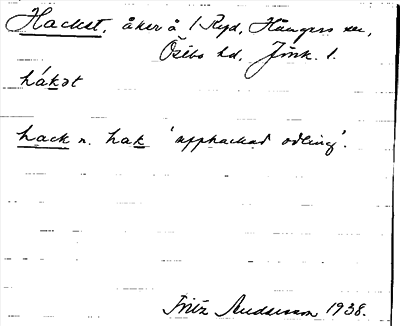 Hackst, åker å 1 Ryd, Hångers sn,
Östbo hd, Jönk. l.
hákət
hack n. hak 'upphackad odling'.
Fritz Andersson 1938.